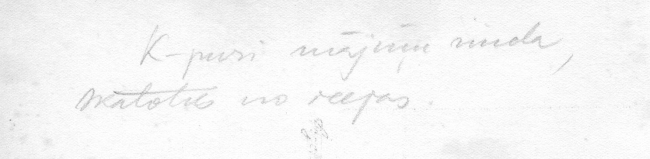 K-puri mājiņu rinda,
skatoties no ceļas.